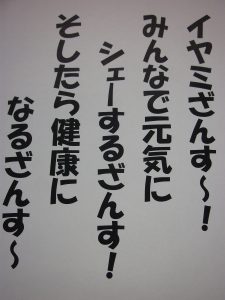 イヤミざんす～！
みんなで元気に
シェーするざんす！
そしたら健康に
なるざんす～